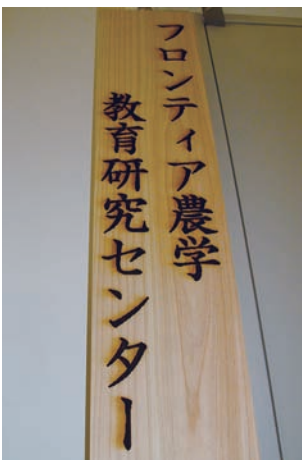 フロンティア農学
教育研究センター